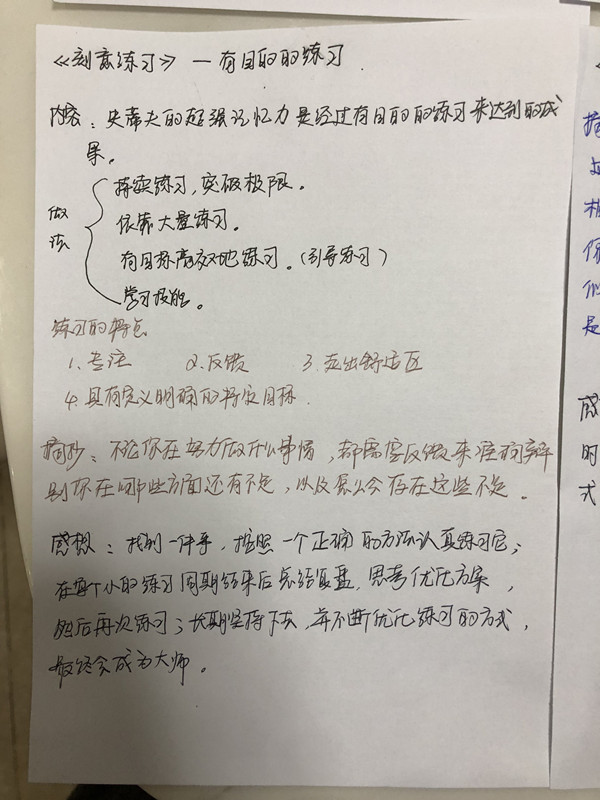 《刻意练习》—有目的的练习
内容：史蒂夫的超强记忆力是经过有目的的练习来达到的成
果。
做法
持续练习，突破极限。
依靠大量练习。
有目标高效地练习。（引导练习）
学习技能。
练习的特点
1. 专注 2. 反馈 3. 走出舒适区
4. 具有定义明确的特定目标.
摘抄：不论你在努力做什么事情，都需要反馈来准确辨
别你在哪些方面还有不足，以及怎么会存在这些不足。
感想：找到一件事，按照一个正确的方法认真练习它；
在每个小的练习周期结束后总结复盘，思考优化方案，
然后再次练习；长期坚持下去，并不断优化练习的方式，
最终会成为大师。
摘
你
们
是
感
时
式